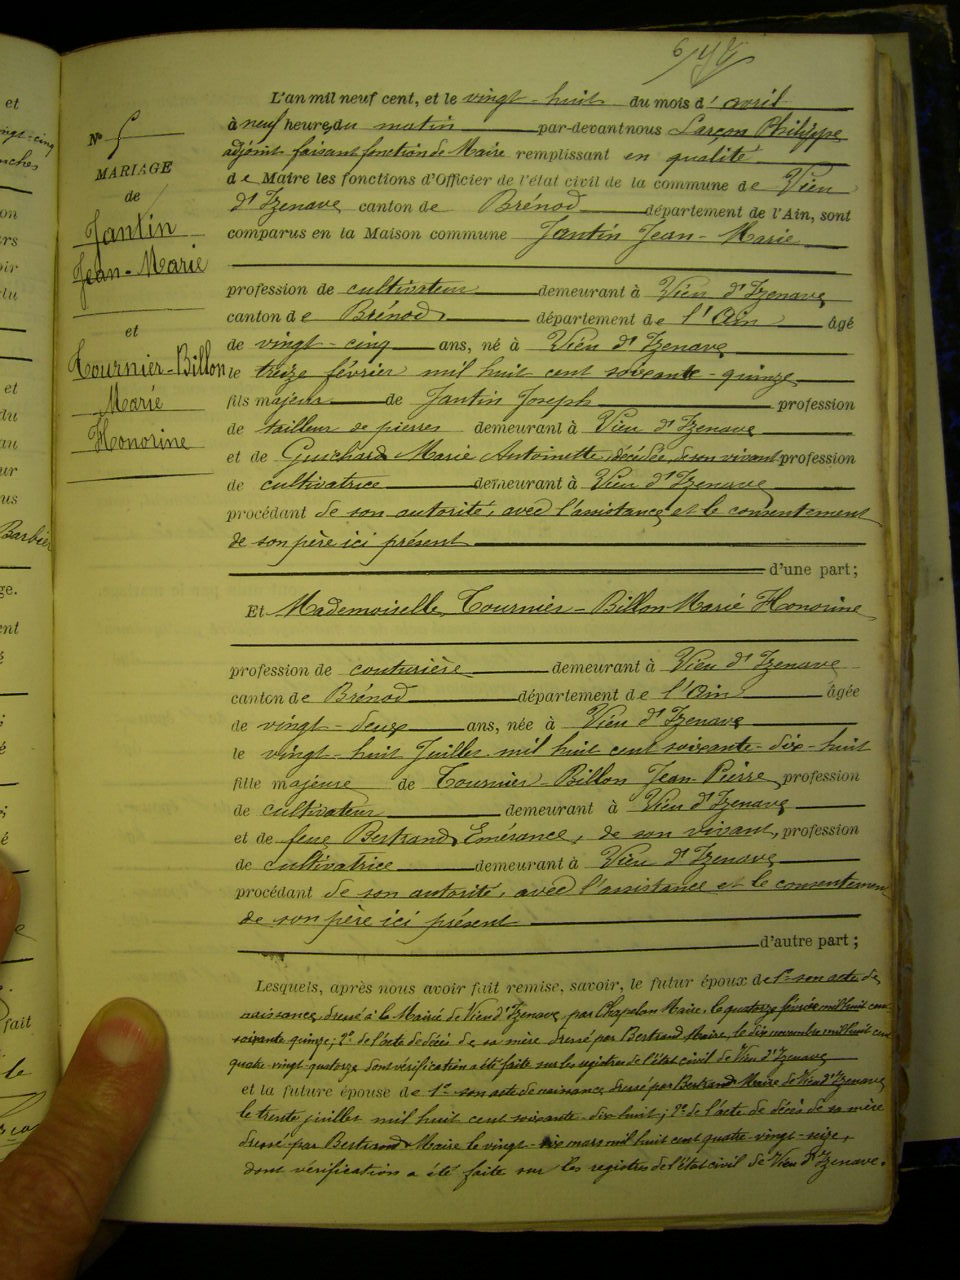 L'an mil neuf cent, et le vingt-huit du mois d'avril
à neuf heures du matin par-devant nous Larçon Philippe
adjoint faisant fonction de Maire remplissant en qualité
de Maire les fonctions d'Officier de l'état civil de la commune de Vieu
d'Izenave canton de Brénod département de l'Ain, sont
comparus en la Maison commune Jantin Jean-Marie
profession de cultivateur demeurant à Vieu d'Izenave
canton de Brénod département de l'Ain âgé
de vingt-cinq ans, né à Vieu d'Izenave
le treize février mil huit cent soixante-quinze
fils majeur de Jantin Joseph profession
de tailleur de pierres demeurant à Vieu d'Izenave
et de Guichard Marie Antoinette, décédée, de son vivant profession
de cultivatrice demeurant à Vieu d'Izenave
procédant de son autorité, avec l'assistance et le consentement
de son père ici présent
d'une part;
Et Mademoiselle Tournier-Billon Marie Honorine
profession de couturière demeurant à Vieu d'Izenave
canton de Brénod département de l'Ain âgée
de vingt-deux ans, née à Vieu d'Izenave
le vingt-huit Juillet mil huit cent soixante-dix-huit
fille majeure de Tournier-Billon Jean-Pierre, profession
de cultivateur demeurant à Vieu d'Izenave
et de feue Bertrand Emérance, de son vivant, profession
de cultivatrice demeurant à Vieu d'Izenave
procédant de son autorité, avec l'assistance et le consentement
de son père ici présent
d'autre part;
Lesquels, après nous avoir fait remise, savoir, le futur époux de 1° son acte de
naissance, dressé à la Mairie de Vieu d'Izenave, par Chapelan Maire, le quatorze février mil huit cent
soixante quinze; 2° de l'acte de décès de sa mère dressé par Bertrand Maire, le dix novembre mil huit cent
quatre vingt quatorze dont vérification a été faite sur les registres de l'état civil de Vieu d'Izenave
et la future épouse de 1° son acte de naissance dressé par Bertrand Maire de Vieu d'Izenave
le trente juillet mil huit cent soixante-dix-huit; 2° de l'acte de décès de sa mère
dressé par Bertrand Maire le vingt mars mil huit cent quatre-vingt-seize,
dont vérification a été faite sur les registres de l'état civil de Vieu d'Izenave.
N° 5
MARIAGE
de
Jantin
Jean-Marie
et
Tournier-Billon
Marie
Honorine